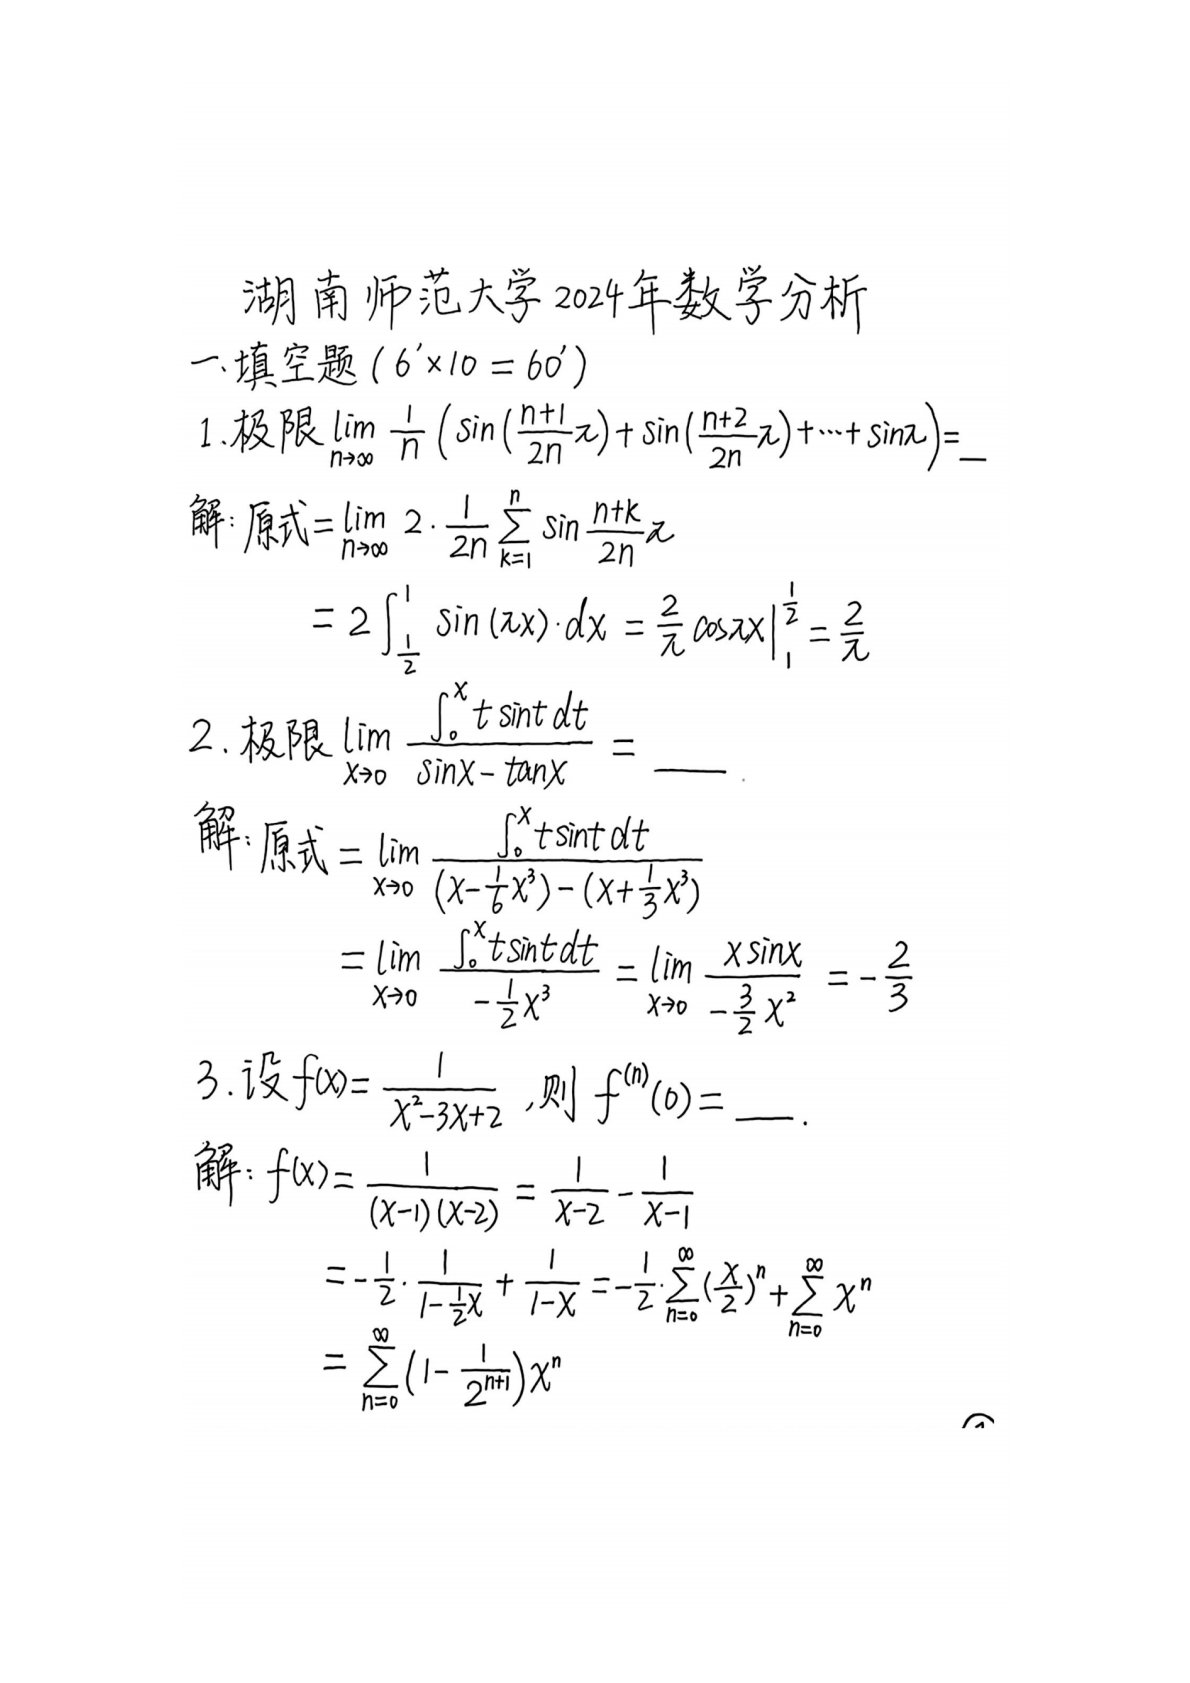 湖南师范大学2024年数学分析
一.填空题(6′×10=60′)
1.极限 lim_{n→∞} 1/n (sin((n+1)/2n π)+sin((n+2)/2n π)+⋯+sinπ)=__
解:原式=lim_{n→∞} 2·1/2n ∑_{k=1}^{n} sin (n+k)/2n π
=2∫_{1/2}^{1} sin(πx)·dx = 2/π cosπx|_{1}^{1/2} = 2/π
2.极限 lim_{x→0} (∫_0^x t sint dt)/(sinx−tanx) = ___.
解:原式=lim_{x→0} (∫_0^x t sint dt)/((x−1/6x³)−(x+1/3x³))
=lim_{x→0} (∫_0^x t sint dt)/(−1/2x³) = lim_{x→0} (x sinx)/(−3/2x²) = −2/3
3.设f(x)=1/(x²−3x+2),则 f^{(n)}(0)=___.
解:f(x)=1/((x−1)(x−2)) = 1/(x−2) − 1/(x−1)
=−1/2·1/(1−1/2x) + 1/(1−x) =−1/2·∑_{n=0}^{∞}(x/2)^n+∑_{n=0}^{∞} x^n
=∑_{n=0}^{∞}(1−1/2^{n+1})x^n